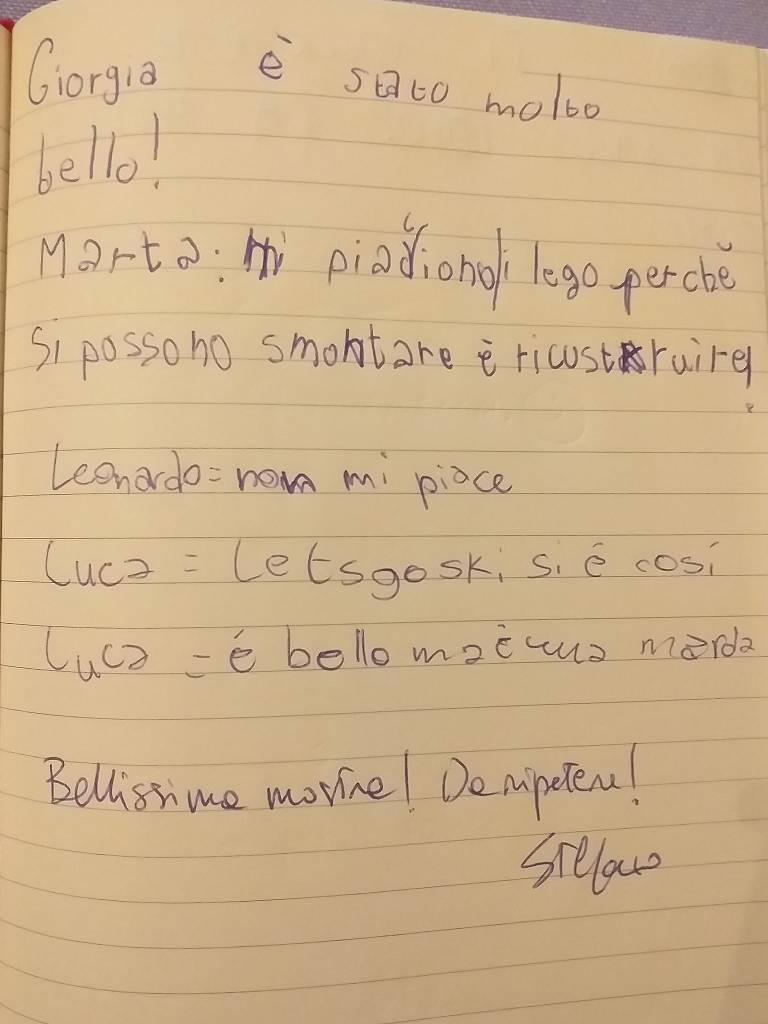 Giorgia è stato molto
bello!
Marta: mi piacciono i lego perchè
si possono smontare è ricustruire
Leonardo = non mi piace
Luca = Letsgoski si é cosí
Luca = é bello ma è una merda
Bellissima mostra! Da ripetere!
Stefano